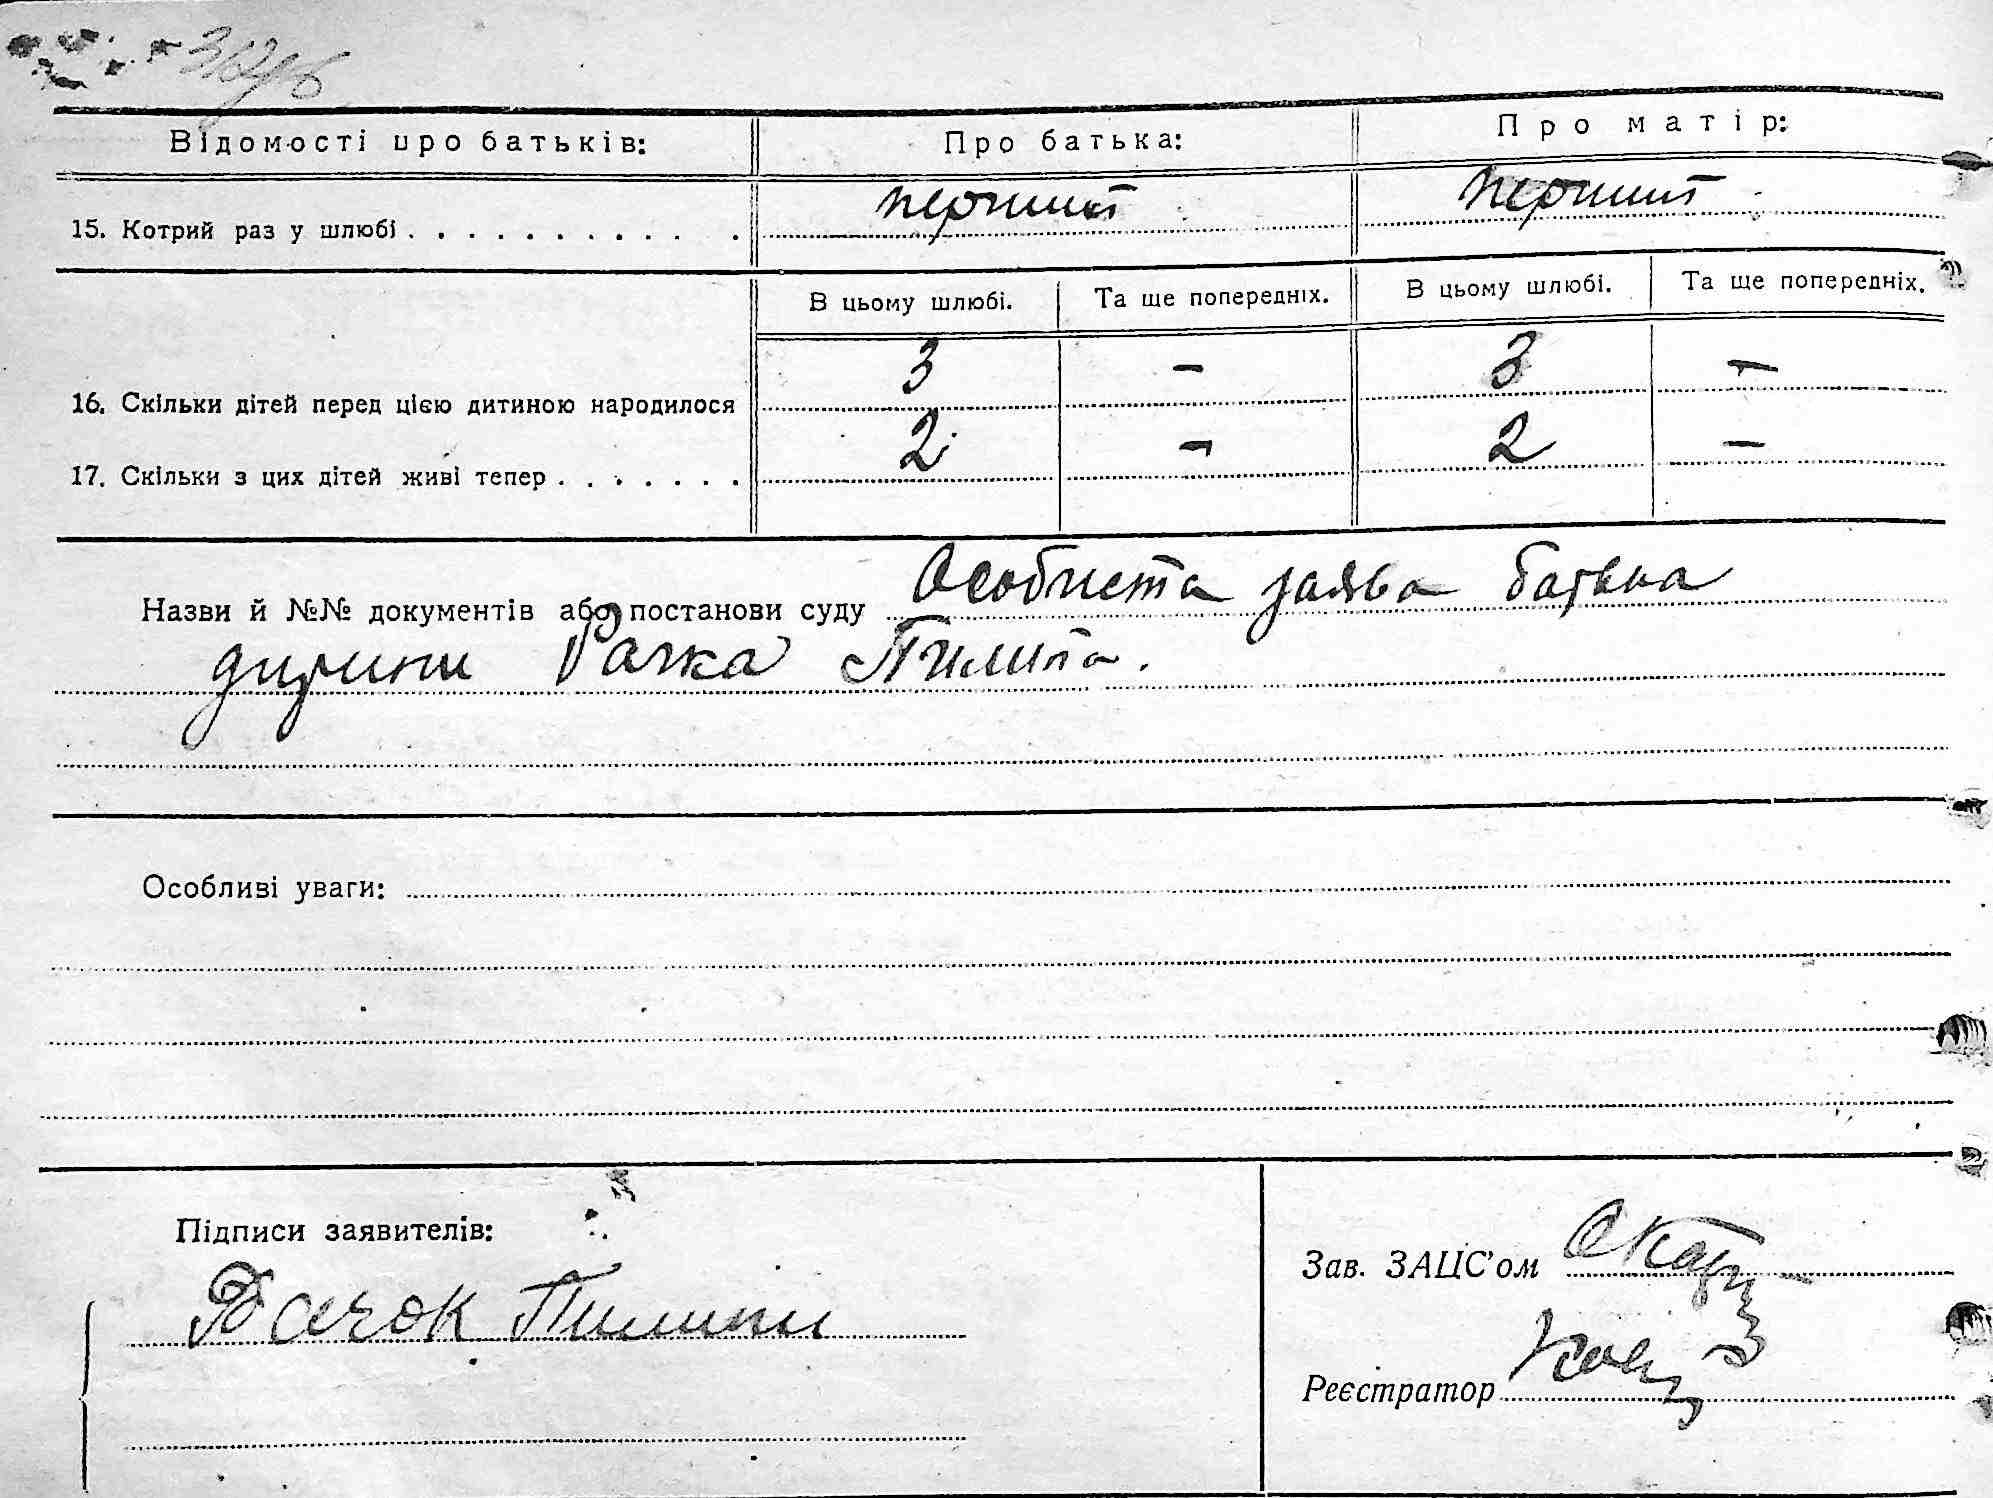 Відомості про батьків: Про батька: Про матір:
15. Котрий раз у шлюбі . . . . . . . . . . . . перший перший
В цьому шлюбі. Та ще попередніх. В цьому шлюбі. Та ще попередніх.
16. Скільки дітей перед цією дитиною народилося 3 – 3 –
17. Скільки з цих дітей живі тепер . . . . . . . 2 – 2 –
Назви й №№ документів або постанови суду Особиста заява батька
дитини Рачка Пилипа.
Особливі уваги:
Підписи заявителів:
Рачок Пилип
Зав. ЗАЦС'ом
Реєстратор